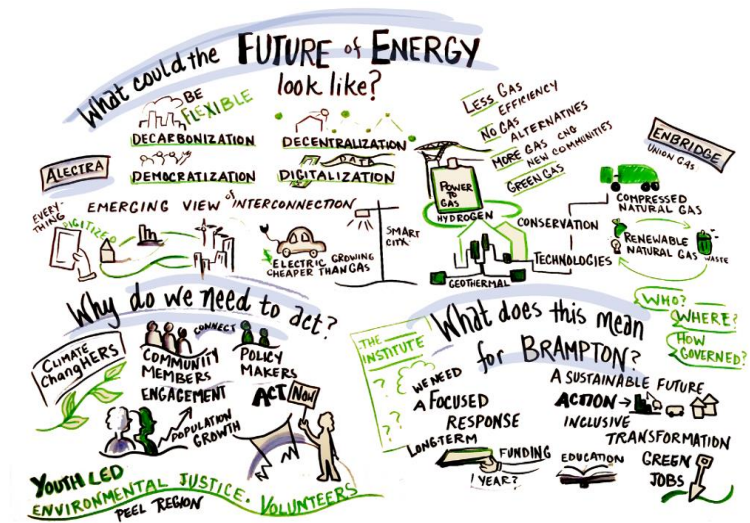 What could the FUTURE of ENERGY
look like?
BE
FLEXIBLE
DECARBONIZATION
DECENTRALIZATION
ALECTRA
DEMOCRATIZATION
DATA
DIGITALIZATION
EMERGING VIEW of INTERCONNECTION
EVERY-
THING
DIGITIZED
ELECTRIC GROWING
$ CHEAPER THAN GAS
SMART
CITY
LESS GAS
EFFICIENCY
NO GAS
ALTERNATIVES
MORE GAS CNG
NEW COMMUNITIES
GREEN GAS
ENBRIDGE
UNION GAS
POWER
TO
GAS
HYDROGEN
CONSERVATION
TECHNOLOGIES
GEOTHERMAL
COMPRESSED
NATURAL GAS
RENEWABLE
NATURAL GAS
WASTE
Why do we need to act?
CLIMATE
ChangHERS
CONNECT
COMMUNITY
MEMBERS
ENGAGEMENT
POLICY
MAKERS
ACT NOW
POPULATION
GROWTH
YOUTH LED
ENVIRONMENTAL JUSTICE. VOLUNTEERS
PEEL REGION
What does this mean
for BRAMPTON?
WHO?
WHERE?
HOW
GOVERNED?
THE
INSTITUTE
?
?
? ?
WE NEED
A FOCUSED
RESPONSE
LONG-TERM
FUNDING
1 YEAR?
A SUSTAINABLE FUTURE
ACTION →
INCLUSIVE
TRANSFORMATION
EDUCATION
GREEN
JOBS